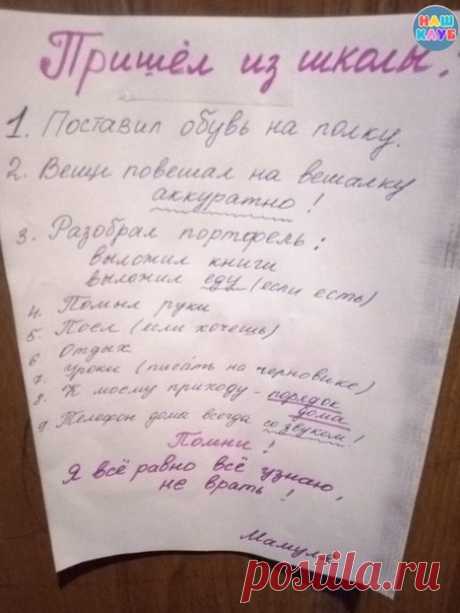 НАШ
КЛУБ
Пришёл из школы:
1. Поставил обувь на полку.
2. Вещи повешал на вешалку
аккуратно!
3. Разобрал портфель:
выложил книги
выложил еду (если есть)
4. Помыл руки
5. Поел (если хочешь)
6 Отдых
7. Уроки (писать на черновике)
8. К моему приходу - порядок
дома
9. Телефон дома всегда со звуком!
Помни!
Я всё равно всё узнаю,
не врать!
Мамуля
postila.ru